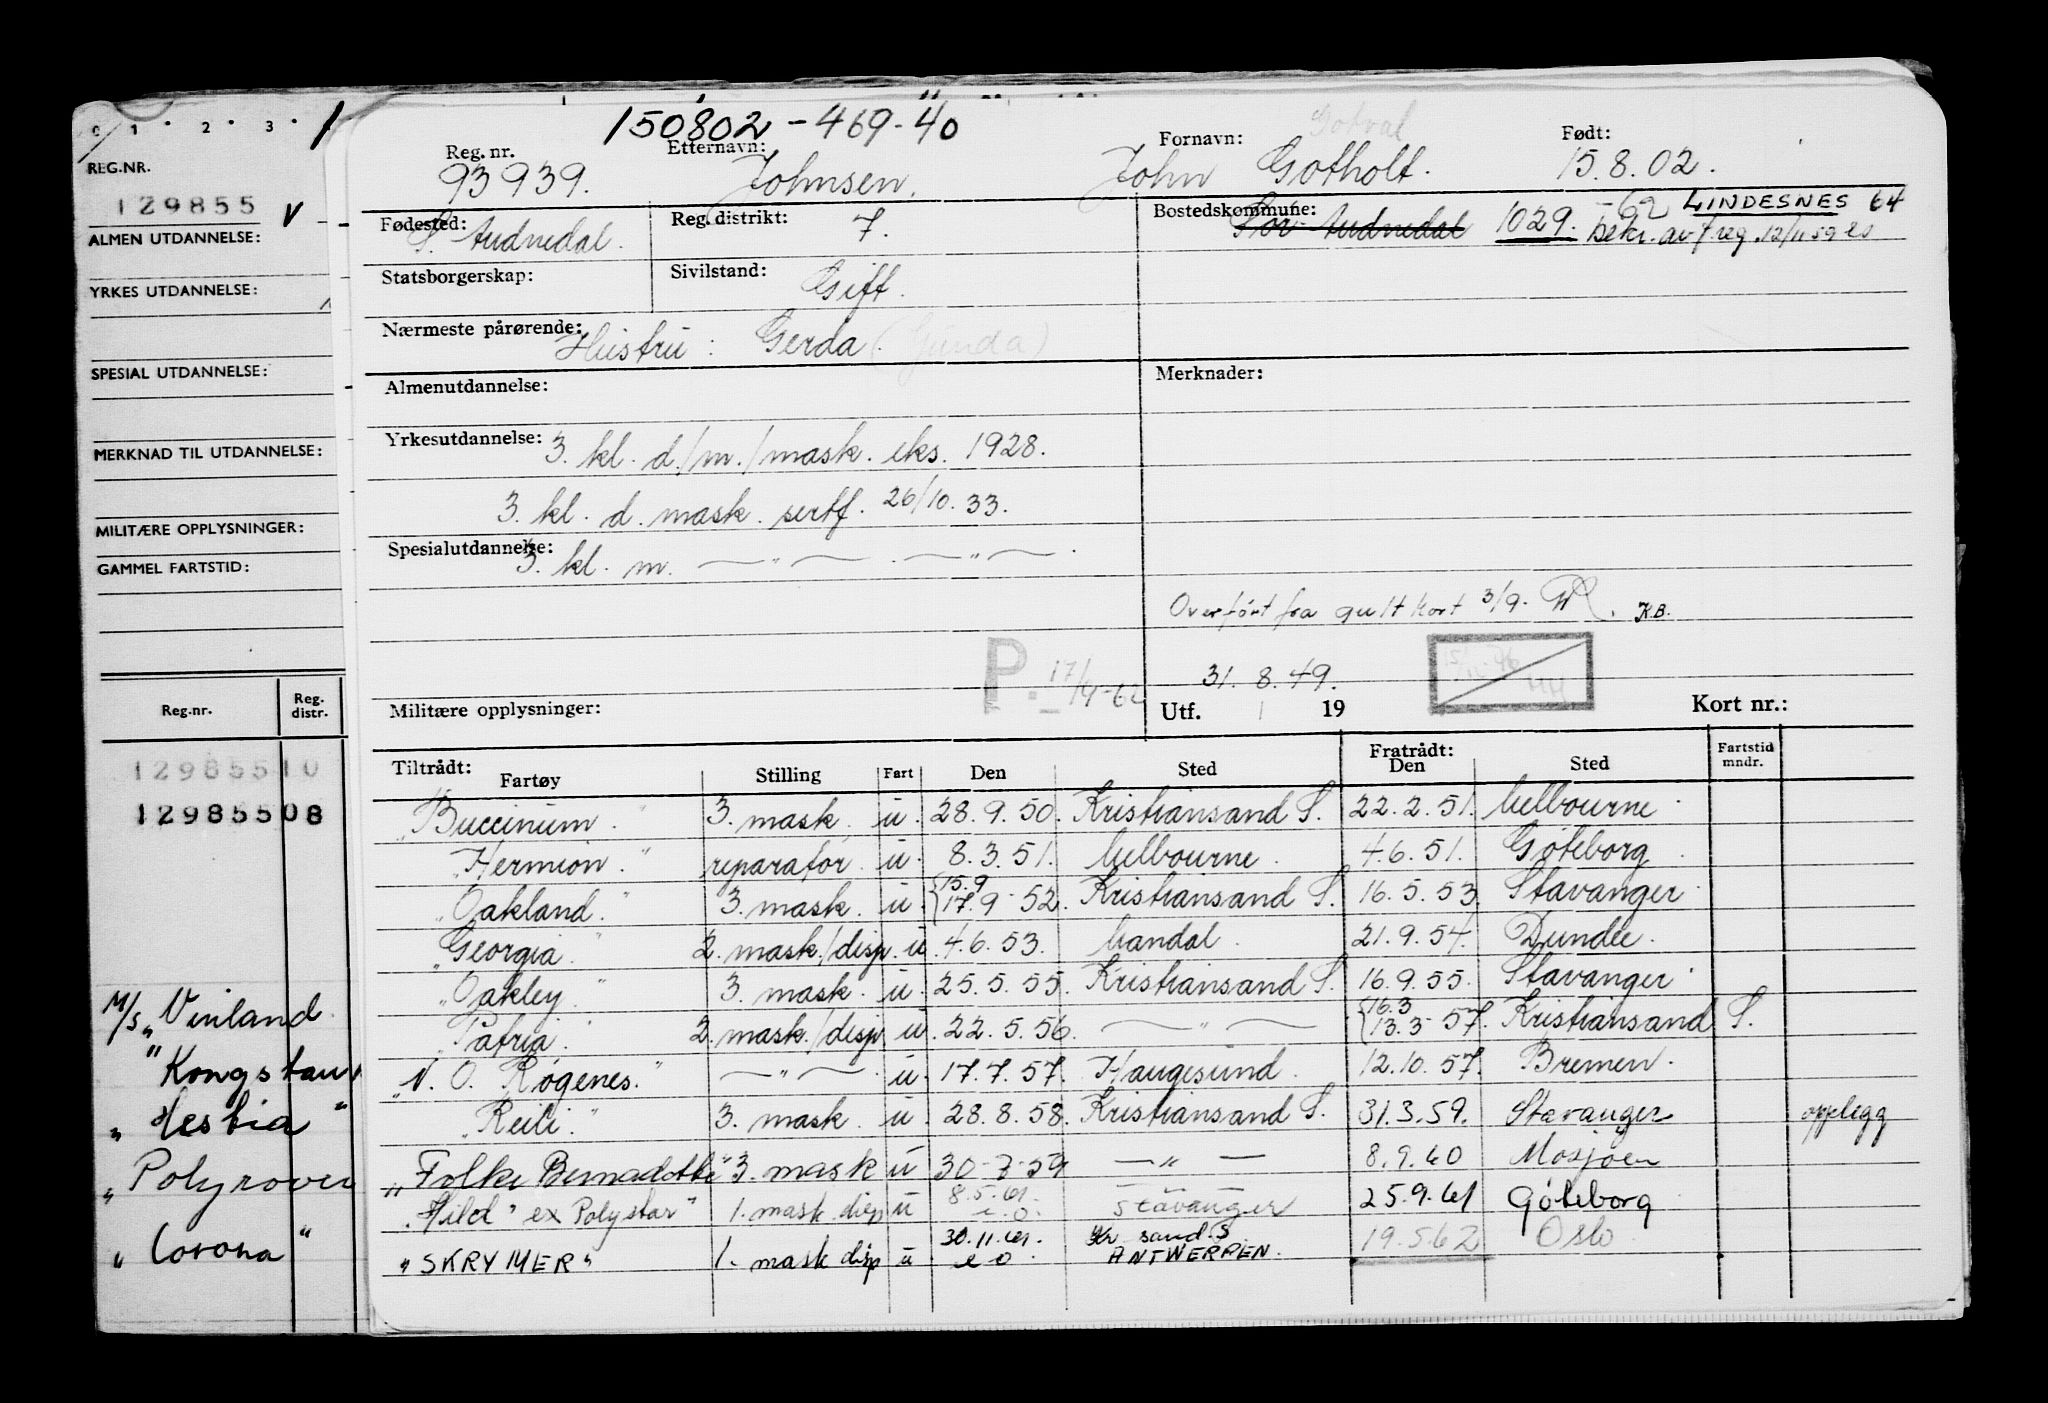 0 1 2 3
REG.NR.
129855 V
ALMEN UTDANNELSE:
YRKES UTDANNELSE:
SPESIAL UTDANNELSE:
MERKNAD TIL UTDANNELSE:
MILITÆRE OPPLYSNINGER:
GAMMEL FARTSTID:
Reg.nr. Reg. distr.
129855 10
129855 08
M/S "Vinland
" Kongstau
" Hestia "
" Polyrover
" Corona "
150802-469-40
Reg. nr. Etternavn: Fornavn: Gotval Født:
93939. Johnsen. John Gotholt. 15.8.02.
Fødested: S. Audnedal. Reg. distrikt: 7. Bostedskommune: Sør-Audnedal 1029. -62 LINDESNES 64
Bekr. av f.reg. 12/11 59 es
Statsborgerskap: Sivilstand: Gift.
Nærmeste pårørende: Hustru: Gerda. (Gunda)
Almenutdannelse: Merknader:
Yrkesutdannelse: 3. kl. d./m./mask. eks. 1928.
3. kl. d. mask. sertf. 26/10. 33.
Spesialutdannelse: 3. kl. m. — " — . — " — .
Overført fra gult kort 3/9. K.B.
P. 17/4-62
31. 8. 49.
Militære opplysninger: Utf. 19 Kort nr.:
Tiltrådt: Fratrådt: Fartstid mndr.
Fartøy Stilling Fart Den Sted Den Sted
"Buccinum." 3. mask. u. 28.9.50. Kristiansand S. 22.2.51. Melbourne.
"Hermion." reparatør u. 8.3.51. Melbourne. 4.6.51. Göteborg.
"Oakland." 3. mask. u. {15.9 17.9 52. Kristiansand S. 16.5.53 Stavanger.
"Georgia." 2. mask./disp. u. 4.6.53. Mandal. 21.9.54. Dundee.
"Oakley." 3. mask. u. 25.5.55. Kristiansand S. 16.9.55. Stavanger.
"Patria." 2. mask./disp u. 22.5.56. — " — {16.3 13.3 57. Kristiansand S.
"N. O. Røgenes." — " — . u. 17.7.57. Haugesund. 12.10.57. Bremen.
"Reili." 3. mask. u. 28.8.58. Kristiansand S. 31.3.59. Stavanger opplegg
"Folke Bernadotte" 3. mask u 30-7-59 — " — 8.9.60 Mosjøen
"Hild" ex Polystar" 1. mask disp u 8.5.61. e.o. Stavanger 25.9.61 Göteborg
"SKRYMER" 1. mask disp u 30.11.61. e o. Kr.sand.S ANTWERPEN. 19.5.62 Oslo